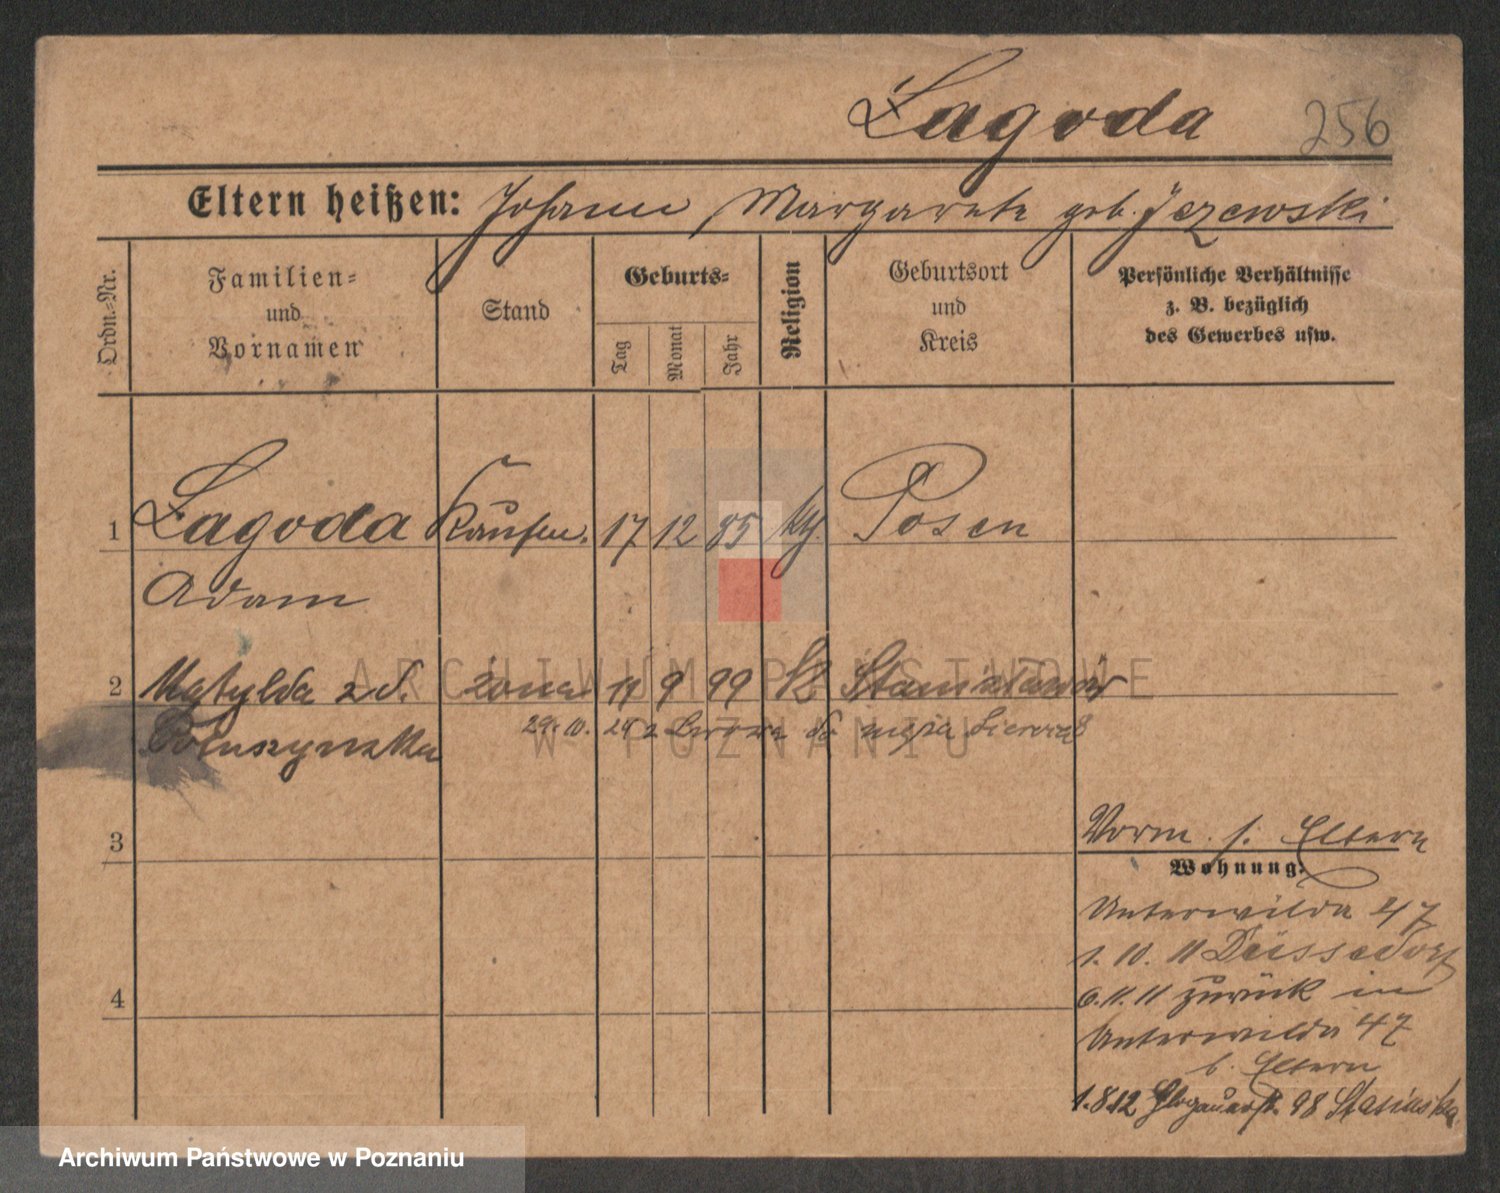 Łagoda 256
Eltern heißen: Johann Margarete geb. Jezewski
Ordn.-Nr.
Familien-
und
Vornamen
Stand
Geburts-
Tag
Monat
Jahr
Religion
Geburtsort
und
Kreis
Persönliche Verhältnisse
z. B. bezüglich
des Gewerbes usw.
1 Łagoda Kaufm. 17 12 85 kth. Posen
Adam
2 Matylda z d. żona 11 9 99 Stanisławów
29. 10. 24 z Lwowa do męża
3
4
Vorm. s. Eltern
Wohnung:
Unterwilda 47
1. 10. 11 Düsseldorf
6. 11. 11 zurück in
Unterwilda 47
b. Eltern
1. 8 12 Glogauerstr. 98 Stasinska
ARCHIWUM PAŃSTWOWE
W POZNANIU
Archiwum Państwowe w Poznaniu